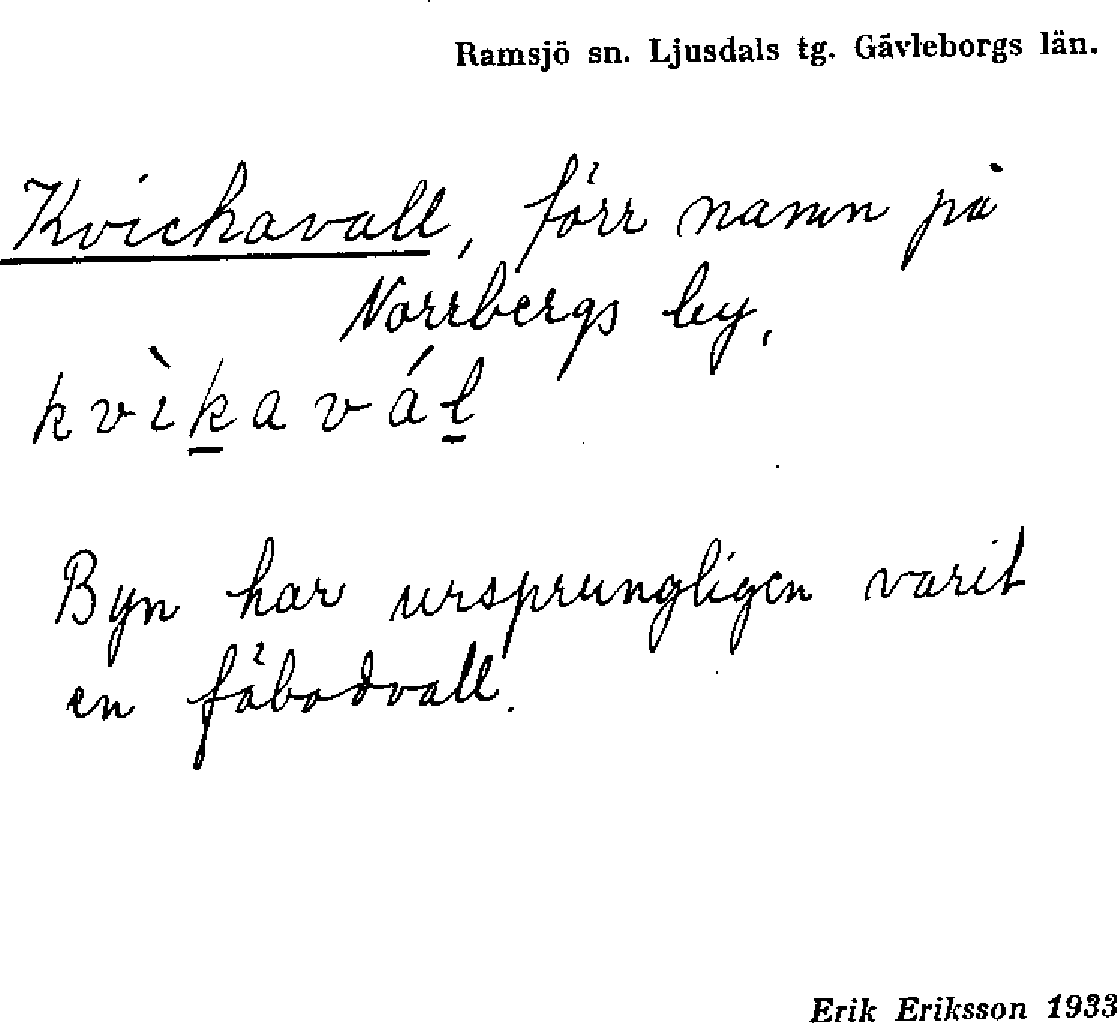 Ramsjö sn. Ljusdals tg. Gävleborgs län.
Kvickavall, förr namn på
Norrbergs by,
kvìk̲avál̲
Byn har ursprungligen varit
en fäbodvall.
Erik Eriksson 1933